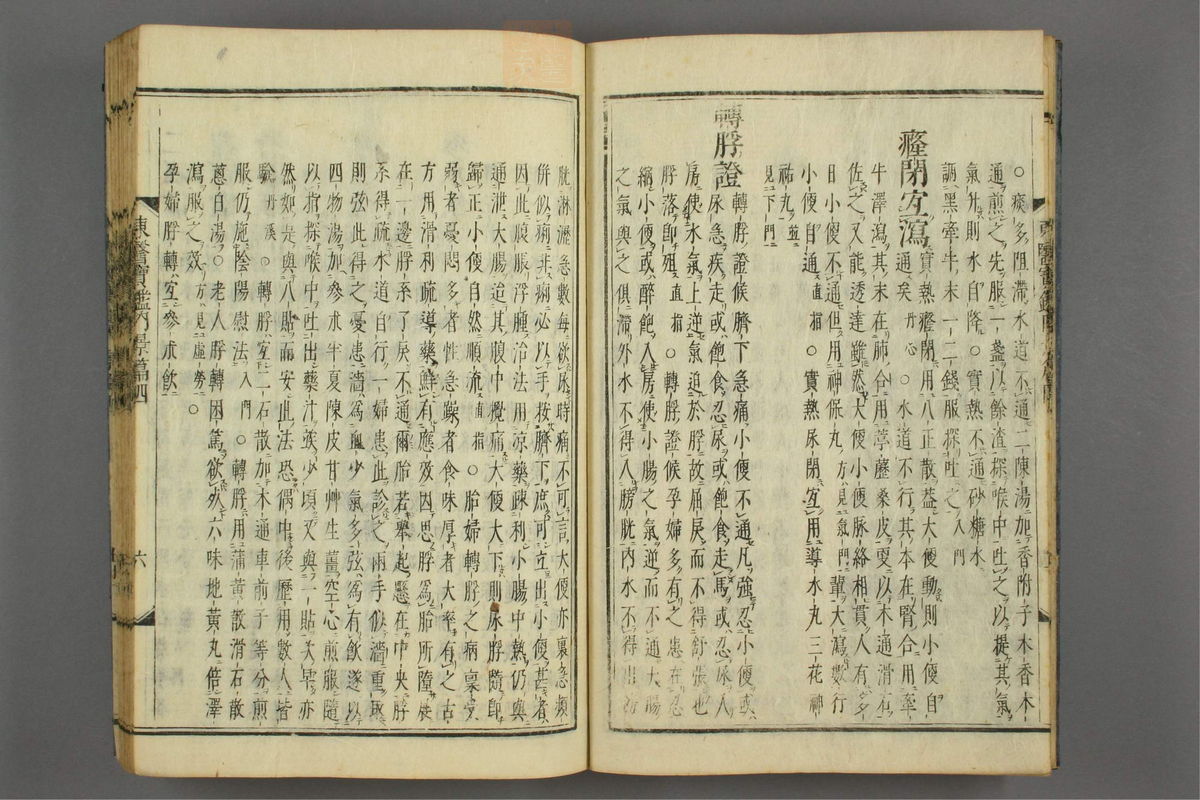 ○痰多阻滯水道不通二陳湯加香附子木香木
通煎之先服一盞以餘渣探喉中吐之以提其氣
氣升則水自降○實熱不通砂糖水
調黑牽牛末一二錢服探吐之入門
癃閉宜瀉實熱癃閉用八正散蓋大便動則小便自
通矣丹心○水道不行其本在腎合用牽
牛澤瀉其末在肺合用葶藶桑皮更以木通滑石
佐之又能透達雖然大便小便脈絡相貫人有多
日小便不通但用神保丸方見氣門輩大瀉數行
小便自通直指○實熱尿閉宜用導水丸三花神
祐丸並見下門
轉脬證轉脬證候臍下急痛小便不通凡強忍小便或
尿急疾走或飽食忍尿或飽食走馬或忍尿入
房使水氣上逆氣迫於脬故屈戾而不得舒張也
脬落即殂直指○轉脬證候孕婦多有之患在忍
縮小便或醉飽入房使小腸之氣逆而不通大腸
之氣與之俱滯外水不得入膀胱內水不得出
胱淋瀝急數每欲尿時痛不可言大便亦裏急頻
倂似痢非痢必以手按臍下庶可立出小便甚者
因此腹脹浮腫治法用凉藥疎利小腸中熱仍與
通泄大腸迨其腹中攪痛大便大下則尿脬隨卽
歸正小便自然順流直指○胎婦轉脬之病禀受
弱者憂悶多者性急躁者食味厚者大率有之古
方用滑利疏導藥鮮有應效因思脬爲胎所墮
在一邊脬系了戾不通爾胎若擧起懸在中央脬
系得疏水道自行一婦患此診之兩手似澁重取
則弦此得之憂患澁爲血少氣多弦爲有飮遂以
四物湯加參朮半夏陳皮甘艸生薑空心煎服隨
以指探喉中吐出藥汁候少頃又與一貼次早亦
然如是與八貼而安此法恐偶中後歷用數人皆
驗丹溪○轉脬宜二石散加木通車前子等分煎
服仍施陰陽慰法入門○轉脬用蒲黃散滑石散
蔥白湯○老人脬轉困篤欲死六味地黃丸倍澤
瀉服之效方見虛勞○
孕婦脬轉宜參朮飮
東醫寶鑑內景篇四
六